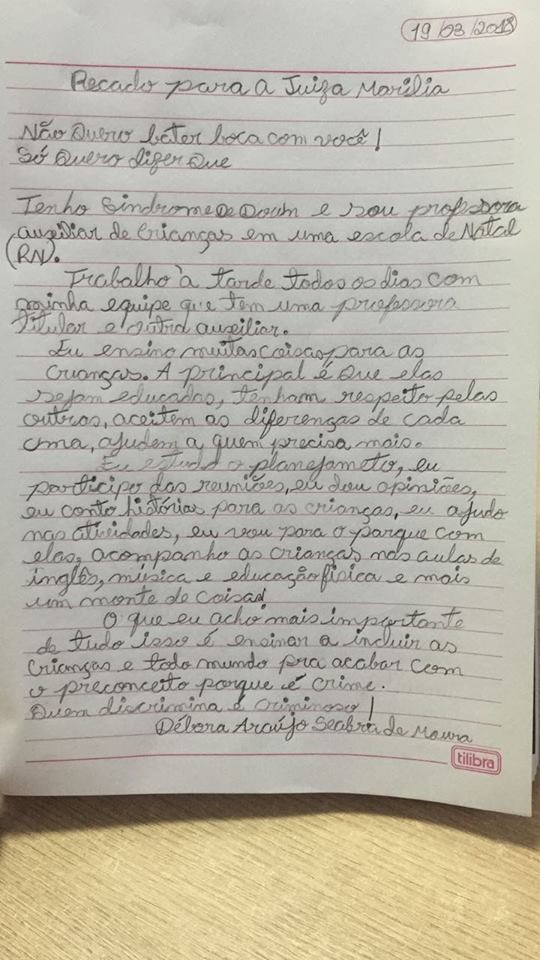 19/03/2018
Recado para a Juiza Marília
Não Quero bater boca com você!
Só Quero dizer Que
Tenho Síndrome De Down e sou professora
auxiliar de crianças em uma escola de Natal
(RN).
Trabalho à tarde todos os dias com
minha equipe que tem uma professora
titular e outra auxiliar.
Eu ensino muitas coisas para as
crianças. A principal é Que elas
sejam educadas, tenham respeito pelas
outras, aceitem as diferenças de cada
uma, ajudem a quem precisa mais.
Eu estudo o planejameto, eu
participo das reuniões, eu dou opiniões,
eu conto histórias para as crianças, eu ajudo
nas atividades, eu vou para o parque com
elas, acompanho as crianças nas aulas de
inglês, música e educação física e mais
um monte de coisas!
O que eu acho mais importante
de tudo isso é ensinar a incluir as
crianças e todo mundo pra acabar com
o preconceito porque é crime.
Quem discrimina é criminoso!
Débora Araújo Seabra de Moura
tilibra